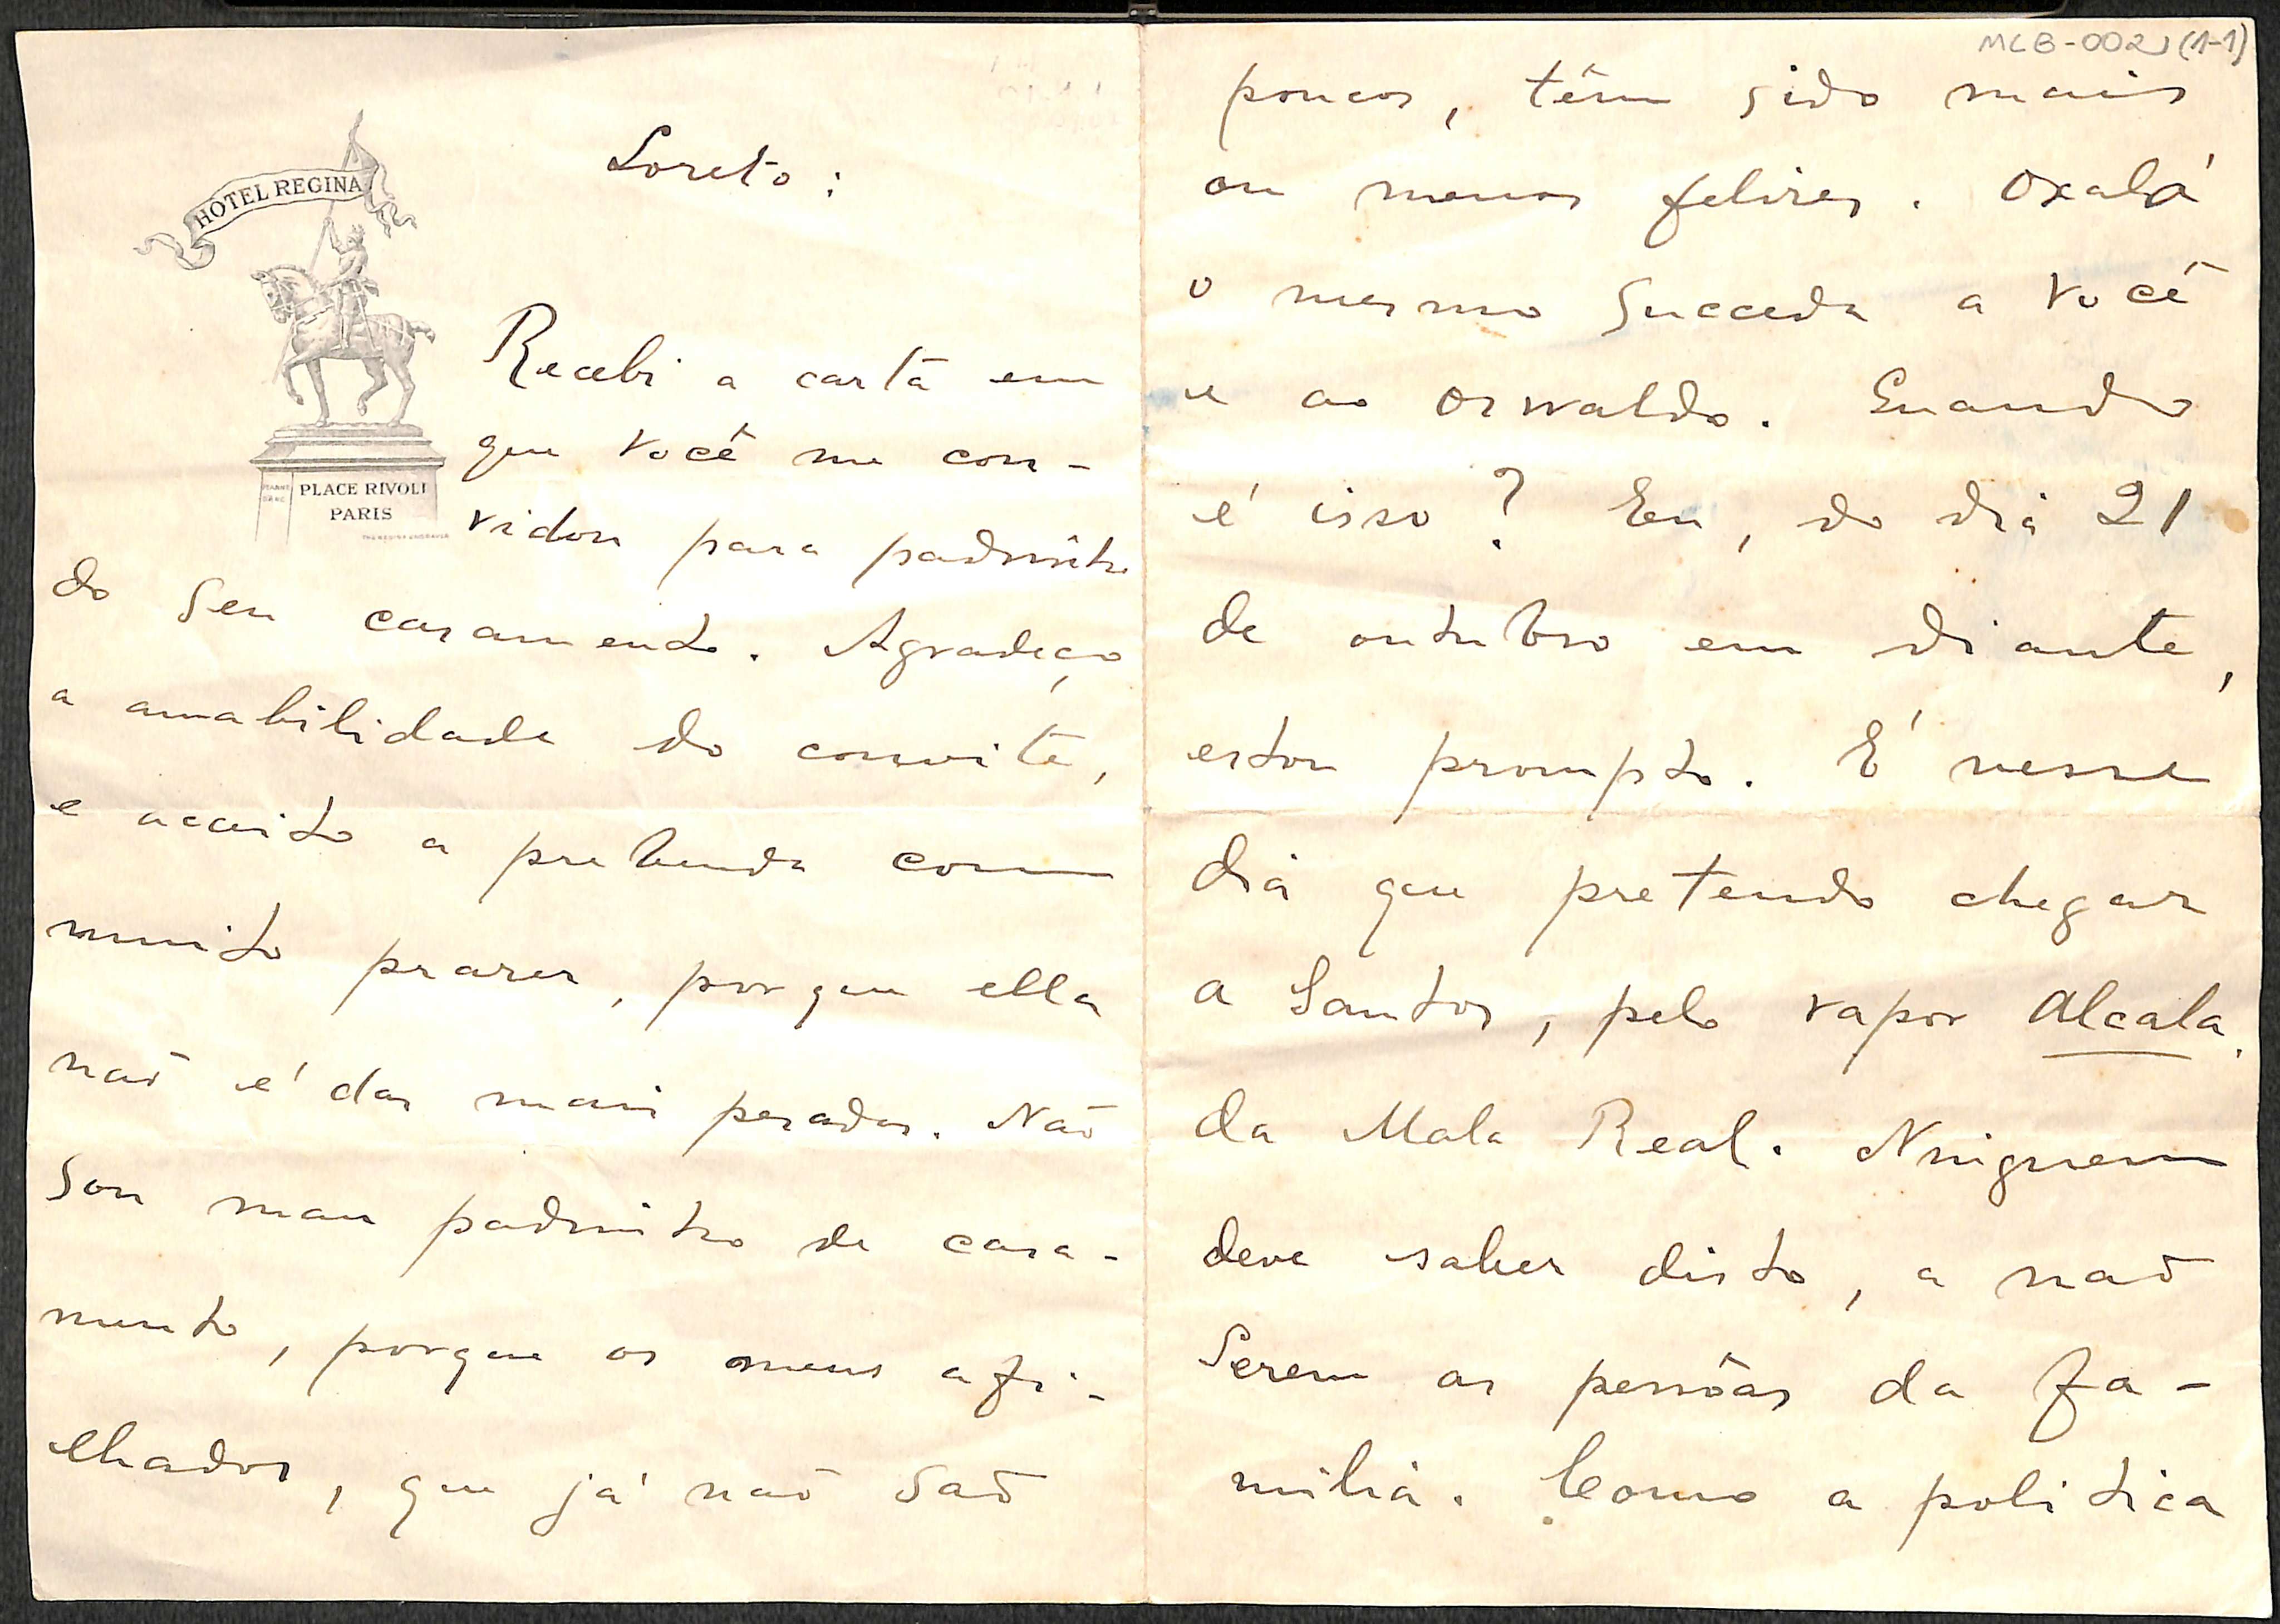 HOTEL REGINA
JEANNE D'ARC
PLACE RIVOLI
PARIS
Loreto:
Recebi a carta em
que você me con-
vidou para padrinho
do seu casamento. Agradeço
a amabilidade do convite,
e acceito a prebenda com
muito prazer, porque ella
não é das mais pesadas. Não
sou mau padrinho de casa-
mento, porque os meus afi-
lhados, que já não são
MLB-002 (1-1)
poucos, têm sido mais
ou menos felizes. Oxalá
o mesmo succeda a você
e ao Oswaldo. Quando
é isso? Eu, do dia 21
de outubro em diante,
estou prompto. É nesse
dia que pretendo chegar
a Santos, pelo vapor Alcala,
da Mala Real. Ninguem
deve saber disto, a não
serem as pessôas da fa-
milia. Como a politica